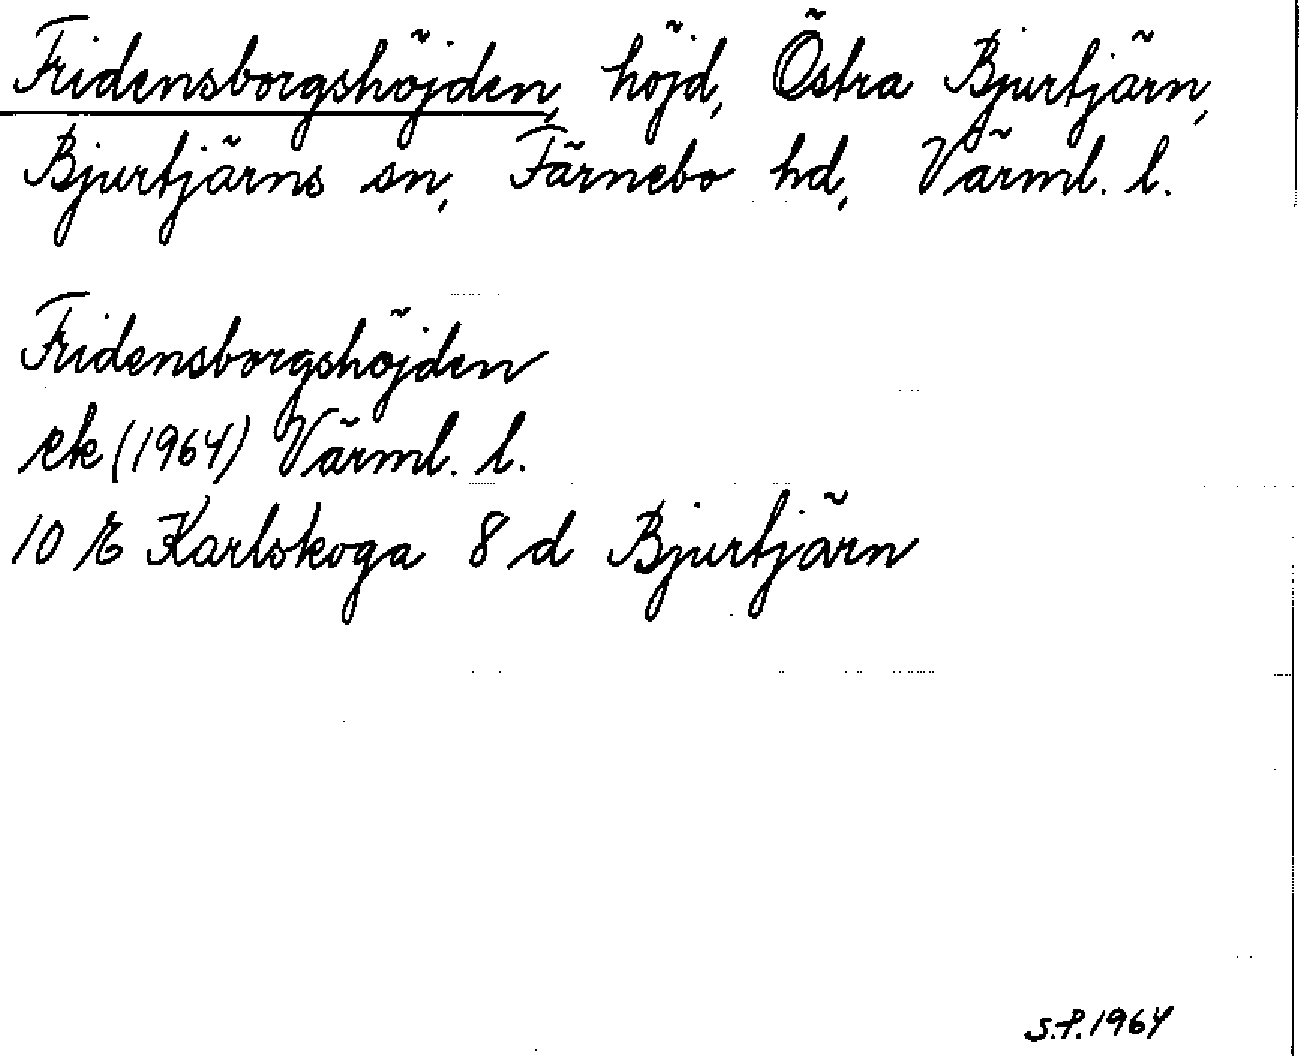 Fridensborgshöjden, höjd, Östra Bjurtjärn,
Bjurtjärns sn, Färnebo hd, Värml. l.
Fridensborgshöjden
ek (1964) Värml. l.
10 E Karlskoga 8 d Bjurtjärn
S.P. 1964